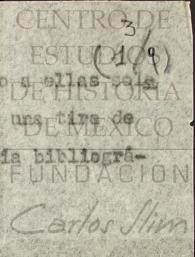 CENTRO DE
3
ESTUDIOS
(1/9)
o a ellas sola
DE HISTORIA
una tira de
DE MÉXICO
ia bibliográ-
FUNDACIÓN
Carlos Slim